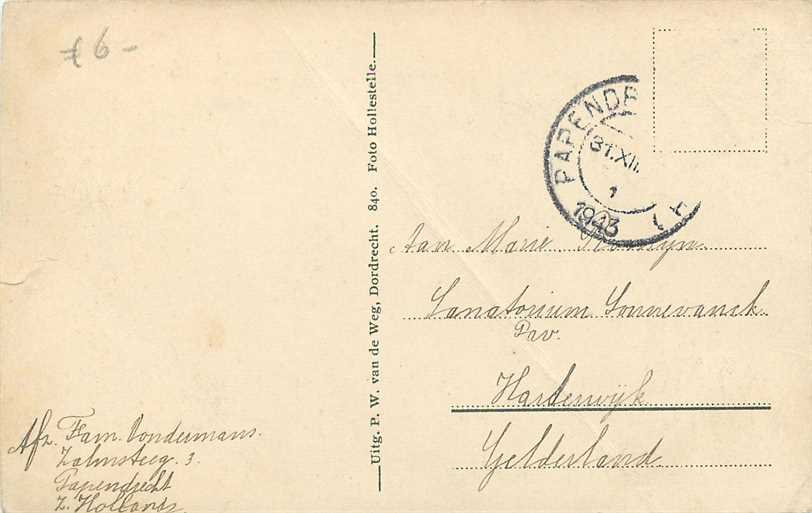 £ 6 -
PAPENDR
31.XII.
1
1943
Uitg. P. W. van de Weg, Dordrecht. 840. Foto Hollestelle.
Aan Marie
Sanatorium Sonnevanck
Prv.
Harderwijk
Gelderland
Afz. Fam. Vondermans.
Zalmsteeg. 3.
Papendrecht
Z. Holland